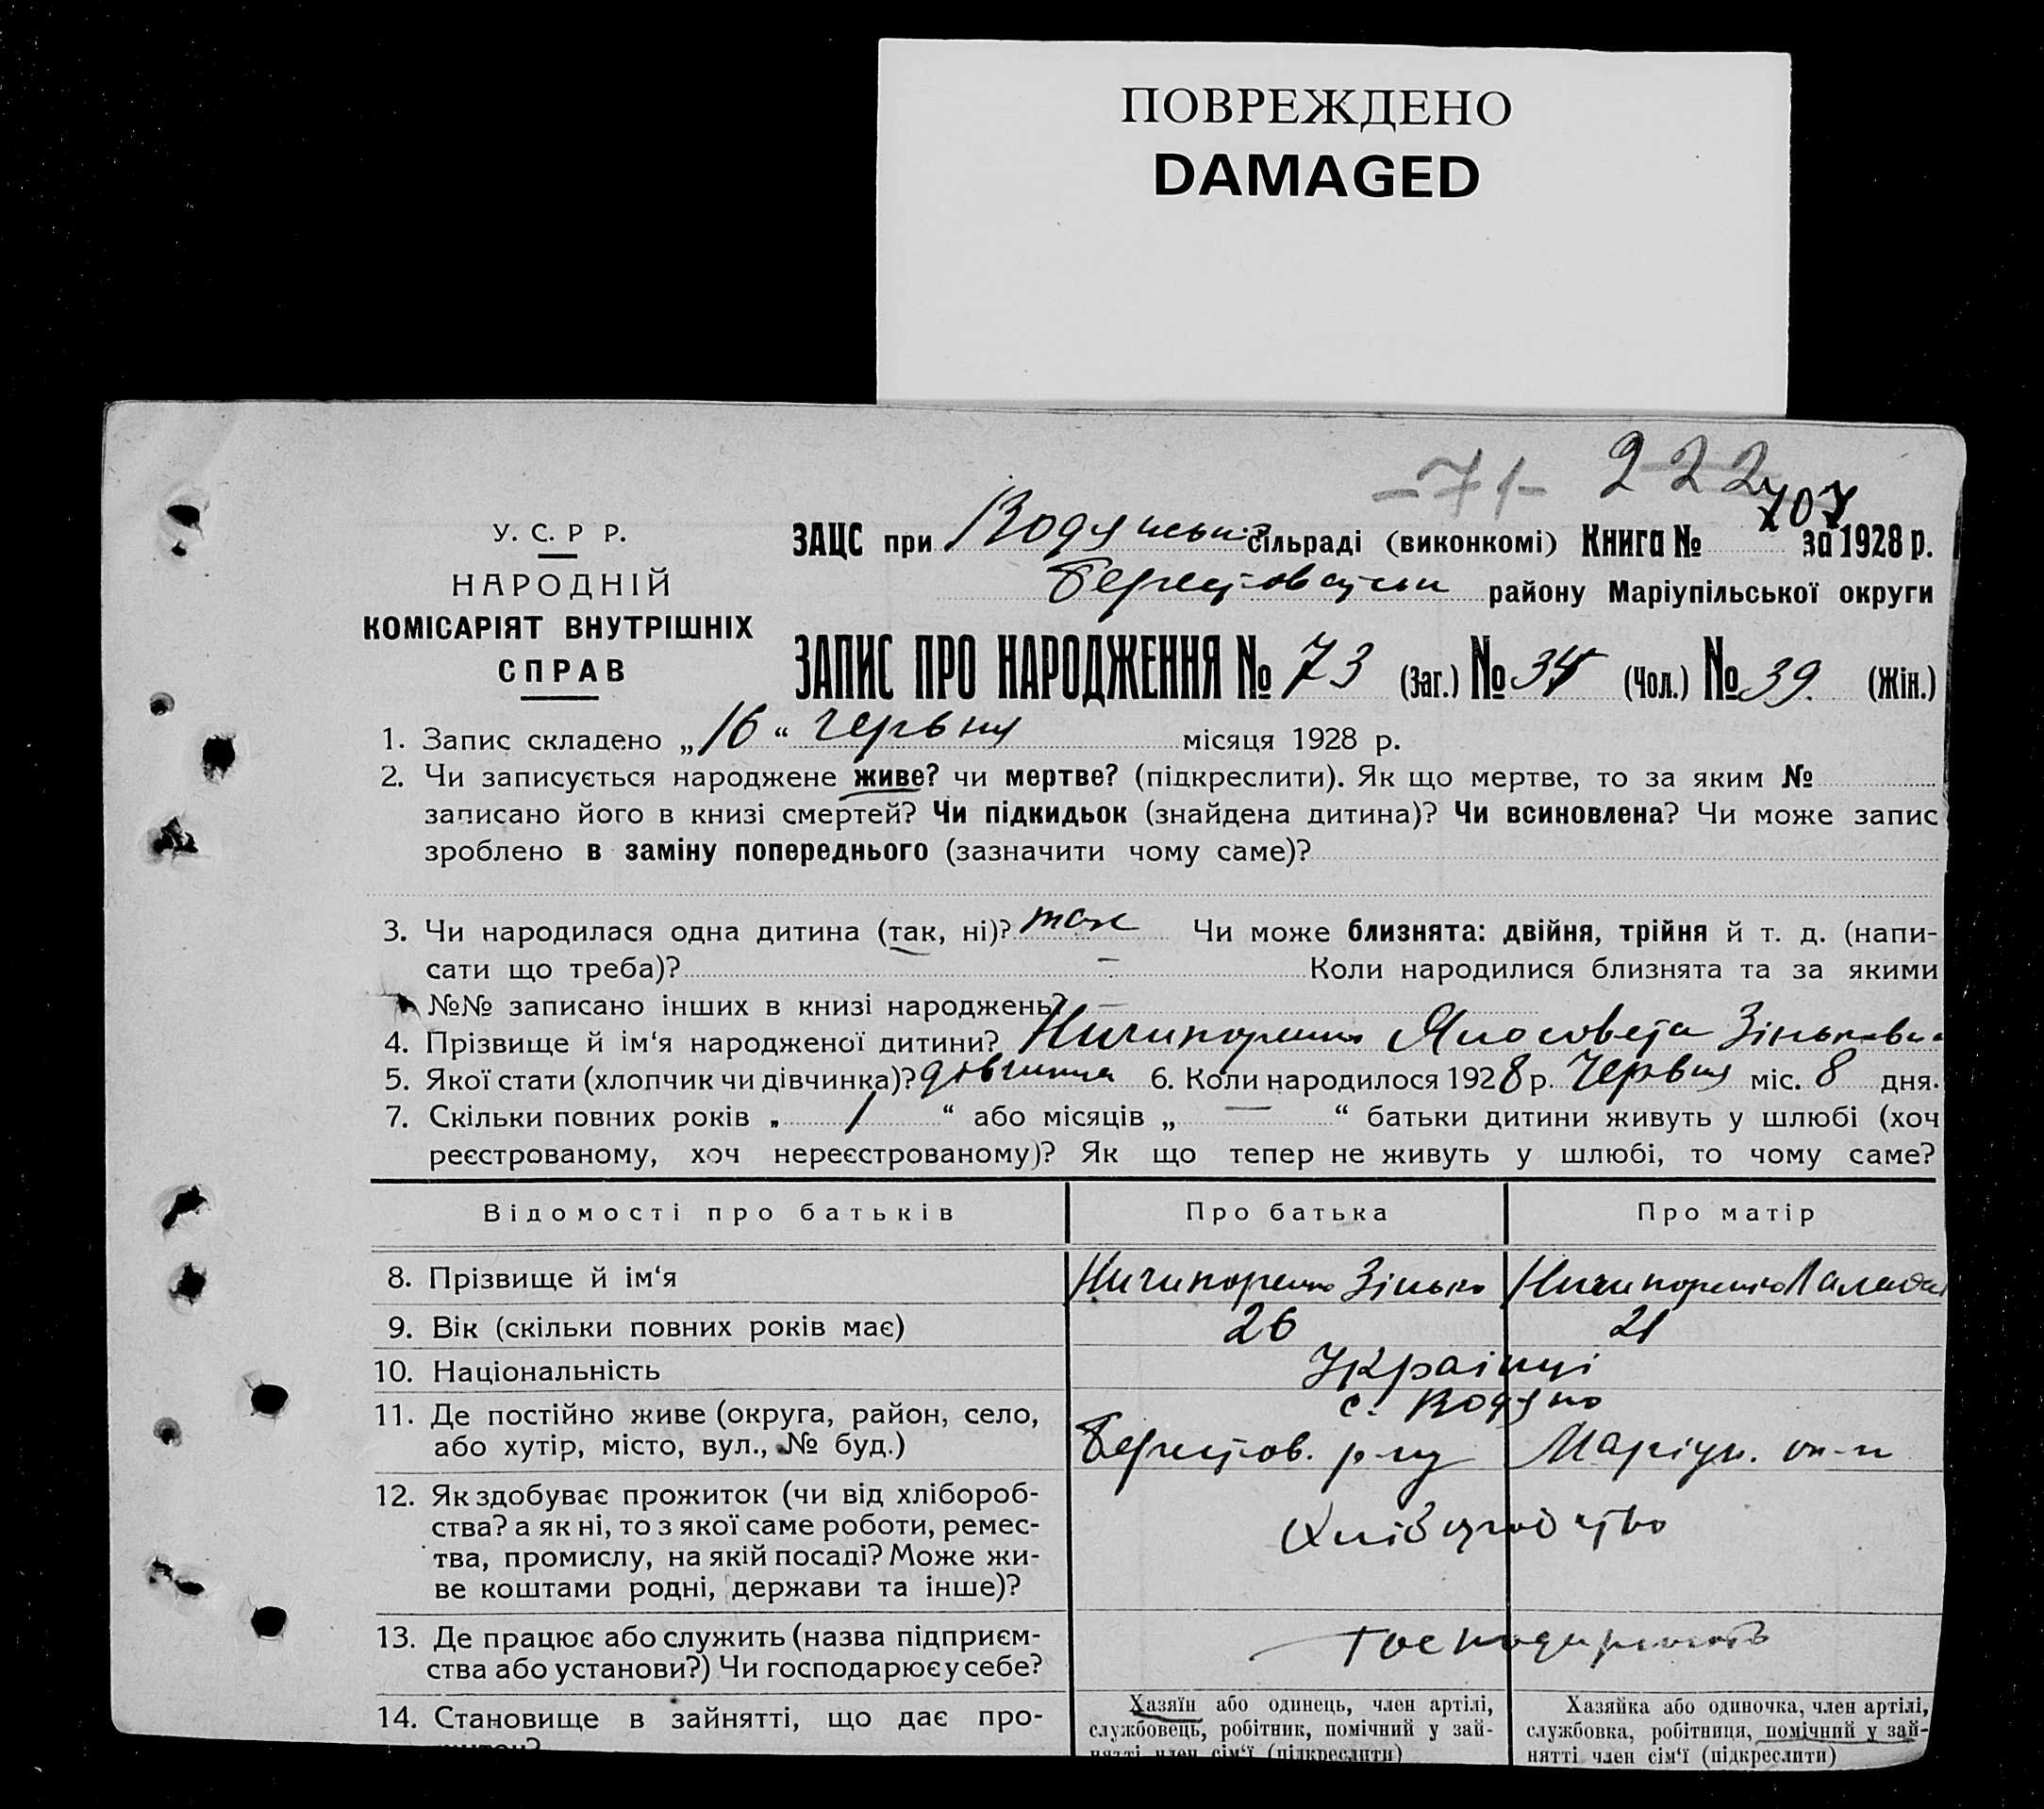 ПОВРЕЖДЕНО
DAMAGED
-71- 222
707
У. С. Р Р.
НАРОДНІЙ
КОМІСАРІЯТ ВНУТРІШНІХ
СПРАВ
ЗАЦС при Водянській сільраді (виконкомі) Книга № за 1928 р.
району Маріупільської округи
ЗАПИС ПРО НАРОДЖЕННЯ № 73 (Заг.) № 34 (Чол.) № 39. (Жін.)
1. Запис складено „16“ червня місяця 1928 р.
2. Чи записується народжене живе? чи мертве? (підкреслити). Як що мертве, то за яким №
записано його в книзі смертей? Чи підкидьок (знайдена дитина)? Чи всиновлена? Чи може запис
зроблено в заміну попереднього (зазначити чому саме)?
3. Чи народилася одна дитина (так, ні)? так Чи може близнята: двійня, трійня й т. д. (напи-
сати що треба)? – Коли народилися близнята та за якими
№№ записано інших в книзі народжень? –
4. Прізвище й ім‘я народженої дитини? Ничипоренко Зіньковна
5. Якої стати (хлопчик чи дівчинка)? дівчинка 6. Коли народилося 1928 р. Червня міс. 8 дня.
7. Скільки повних років „ 1 “ або місяців „ — “ батьки дитини живуть у шлюбі (хоч
реєстрованому, хоч нереєстрованому)? Як що тепер не живуть у шлюбі, то чому саме?
Відомості про батьків Про батька Про матір
8. Прізвище й ім‘я Ничипоренко Зінько Ничипоренко
9. Вік (скільки повних років має) 26 21
10. Національність Українці
11. Де постійно живе (округа, район, село, с. Водяно
або хутір, місто, вул., № буд.) Берестов. р-ну Маріуп. ок-и
12. Як здобуває прожиток (чи від хлібороб-
ства? а як ні, то з якої саме роботи, ремес-
тва, промислу, на якій посаді? Може жи-
ве коштами родні, держави та інше)?
13. Де працює або служить (назва підприєм-
ства або установи?) Чи господарює у себе?
14. Становище в зайнятті, що дає про-
Хазяїн або одинець, член артілі,
службовець, робітник, помічний у зай-
нятті член сім‘ї (підкреслити)
Хазяйка або одиночка, член артілі,
службовка, робітниця, помічний у зай-
нятті член сім‘ї (підкреслити)